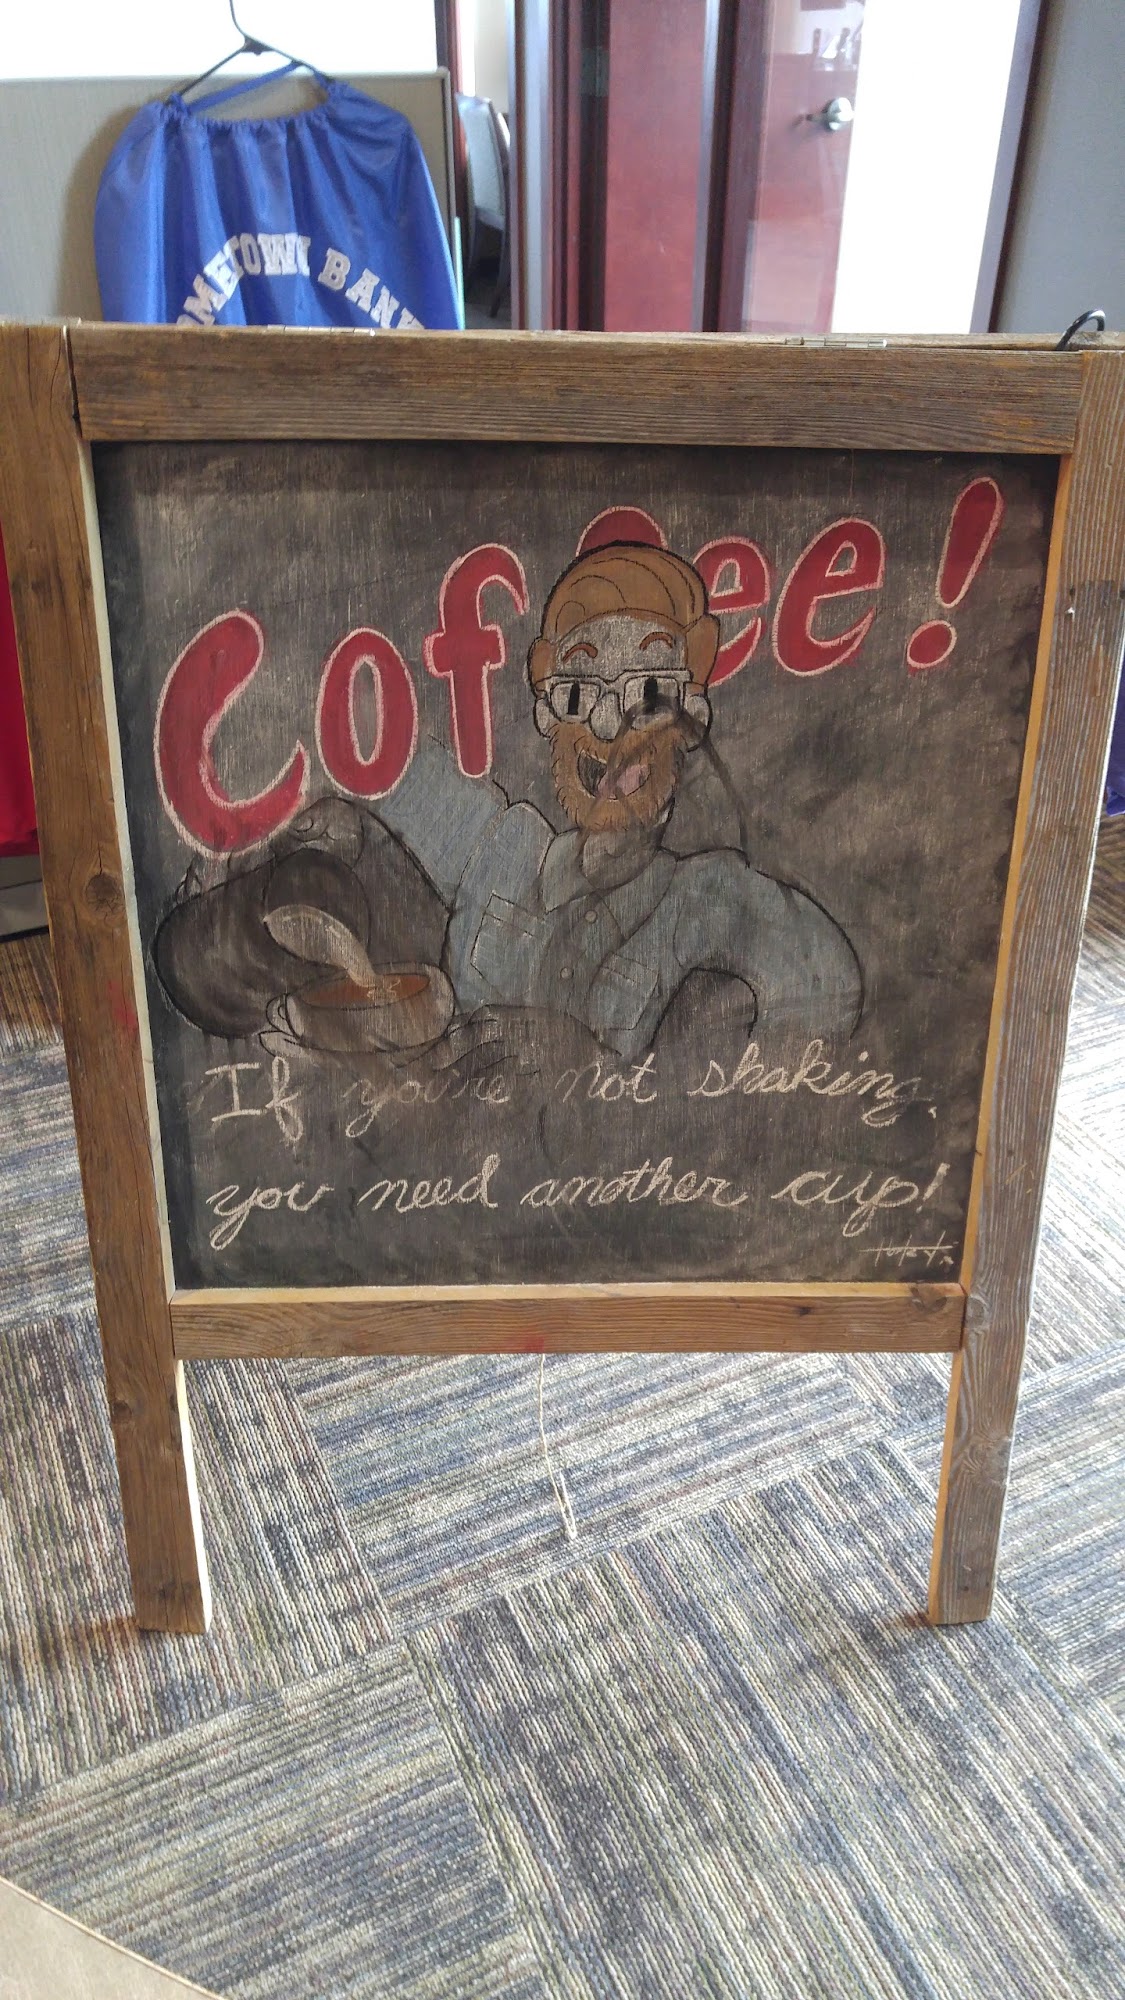 OMETOWN BANK
Coffee!
If you're not shaking,
you need another cup!